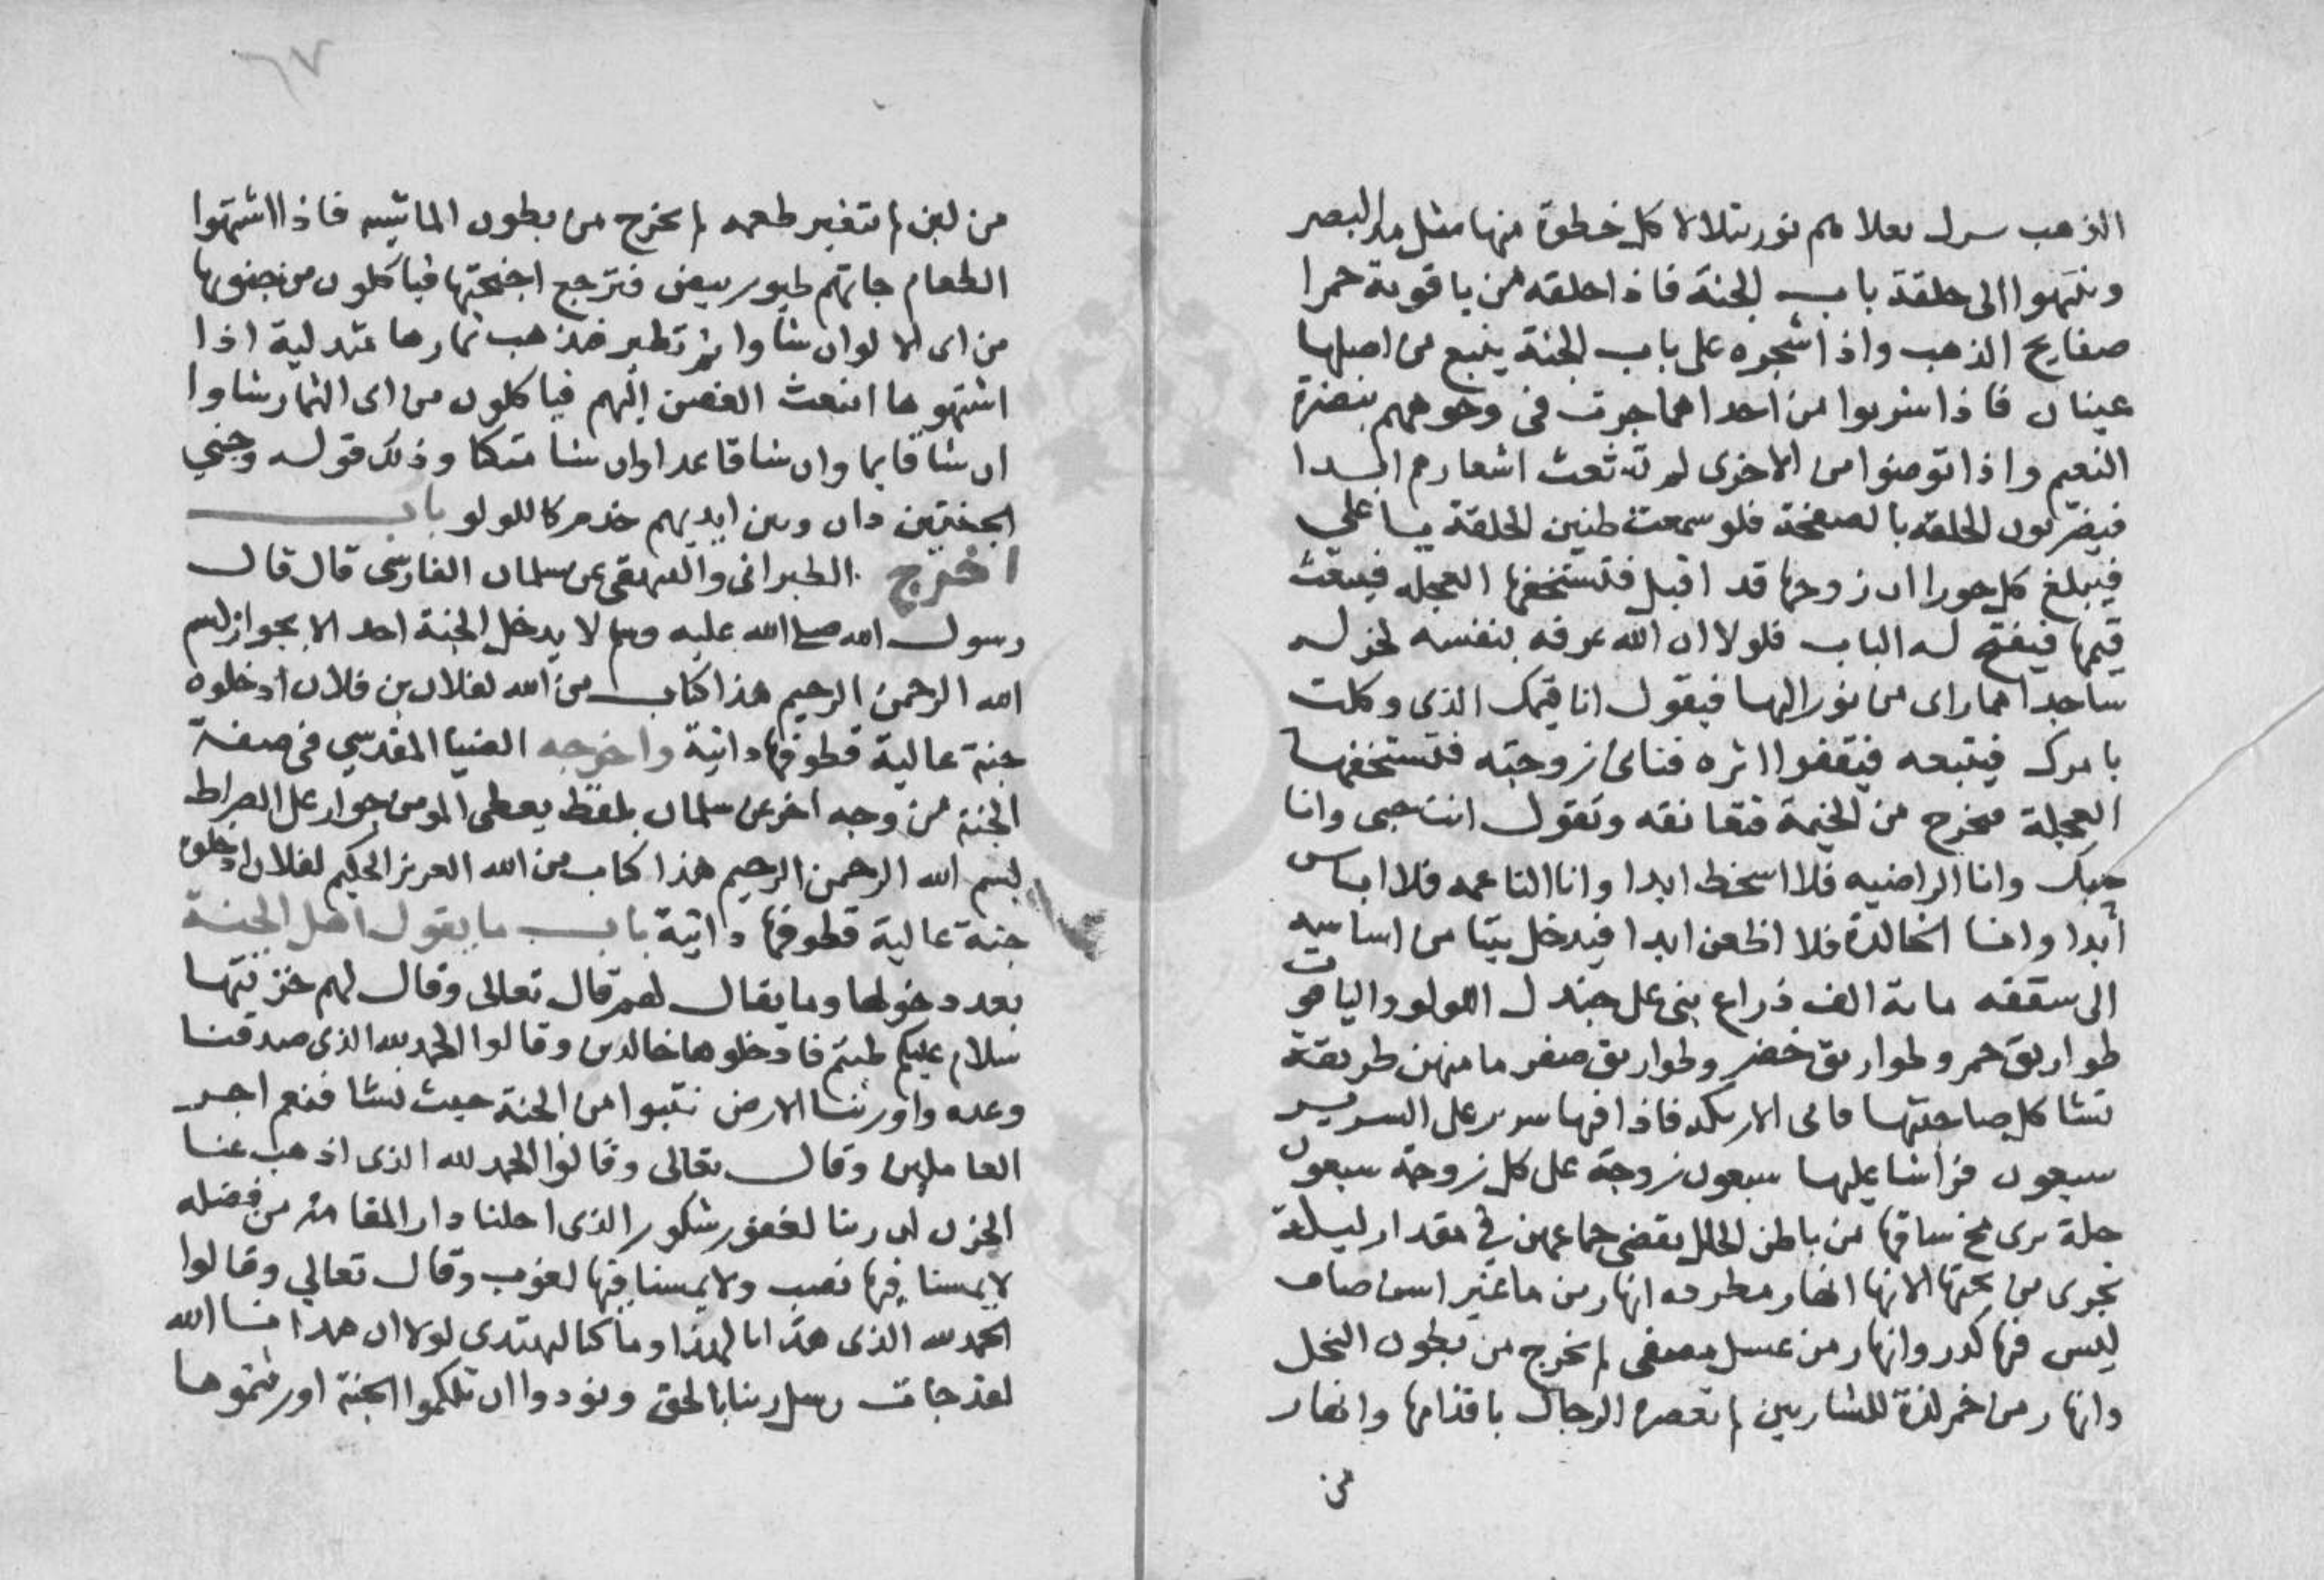 الذهب شرك نعالهم نور يتلالا كل خطوة منها مثل مد البصر
وينتهوا الى حلقة باب الجنة فاذا حلقه من ياقوتة حمرا
صفايح الذهب واذا شجره على باب الجنة ينبع من اصلها
عينان فاذا شربوا من احداهما جرت في وجوههم بنضرة
النعيم واذا توضوا من الاخرى لم تشعث اشعارهم ابدا
فيضربون الحلقه بالصفحة فلو سمعت طنين الحلقة يا على
فيبلغ كل حورا ان زوجها قد اقبل فتستخفها العجله فتبعث
قيمها فيفتح له الباب فلولا ان الله عرفه بنفسه لخر له
ساجدا مما راى من نور البها فيقول انا قيمك الذى وكلت
بامرك فيتبعه فيقفوا اثره فتاتى زوجته فتستخفها
العجلة فتخرج من الخيمة فتعانقه وتقول انت حبى وانا
حبك وانا الراضيه فلا اسخط ابدا وانا الناعمه فلا اباس
ابدا وانا الخالدة فلا اظعن ابدا فيدخل بيتا من اساسه
الى سقفه ماىة الف ذراع بنى على جندل اللولو والياقوت
طواريق حمر وطواريق خضر وطواريق صفر ما منهن طريقة
تشاكل صاحبتها فاتى الاريكه فاذا فيها سرير على السرير
سبعون فراشا عليها سبعون زوجة على كل زوجة سبعون
حلة يرى مخ ساقها من باطن الحلل يقضى جماعهن في مقدار ليلة
تجرى من تحتها الانهار انهار مطرده انهار من ما غير اسن صاف
ليس فيها كدر وانهار من عسل مصفى لم يخرج من بطون النحل
وانهار من خمر لذة للشاربين لم تعصره الرجال باقدامها وانهار
من
٦٧
من لبن لم يتغير طعمه لم يخرج من بطون الماشيه فاذا اشتهوا
الطعام جاتهم طيور بيض فترجع اجنحتها فياكلون من جنوبها
من اى الالوان شاوا ثم تطير فتذهب ثمارها متدلية اذا
اشتهوها انبعث الغصن اليهم فياكلون من اى الثمار شاوا
ان شا قايما وان شا قاعدا وان شا متكا وذلك قوله وجنى
الجنتين دان وبين ايديهم خدم كاللولو باب
اخرج الطبرانى والبيهقى عن سلمان الفارسى قال قال
رسول الله صلى الله عليه وسلم لا يدخل الجنة احد الا بجواز بسم
الله الرحمن الرحيم هذا كتاب من الله لفلان بن فلان ادخلوه
جنة عالية قطوفها دانية واخرجه الضيا المقدسي في صفة
الجنة من وجه اخر عن سلمان بلفظ يعطى المومن جواز على الصراط
بسم الله الرحمن الرحيم هذا كتاب من الله العزيز الحكيم لفلان ادخلوه
جنة عالية قطوفها دانية باب ما يقول اهل الجنة
بعد دخولها وما يقال لهم قال تعالى وقال لهم خزنتها
سلام عليكم طبتم فادخلوها خالدين وقالوا الحمد لله الذى صدقنا
وعده واورثنا الارض نتبوا من الجنة حيث نشا فنعم اجر
العاملين وقال تعالى وقالوا الحمد لله الذى اذهب عنا
الحزن ان ربنا لغفور شكور الذى احلنا دار المقامة من فضله
لا يمسنا فيها نصب ولا يمسنا فيها لغوب وقال تعالي وقالوا
الحمد لله الذى هدانا لهذا وما كنا لنهتدى لولا ان هدانا الله
لقد جات رسل ربنا بالحق ونودوا ان تلكموا الجنة اورثتموها